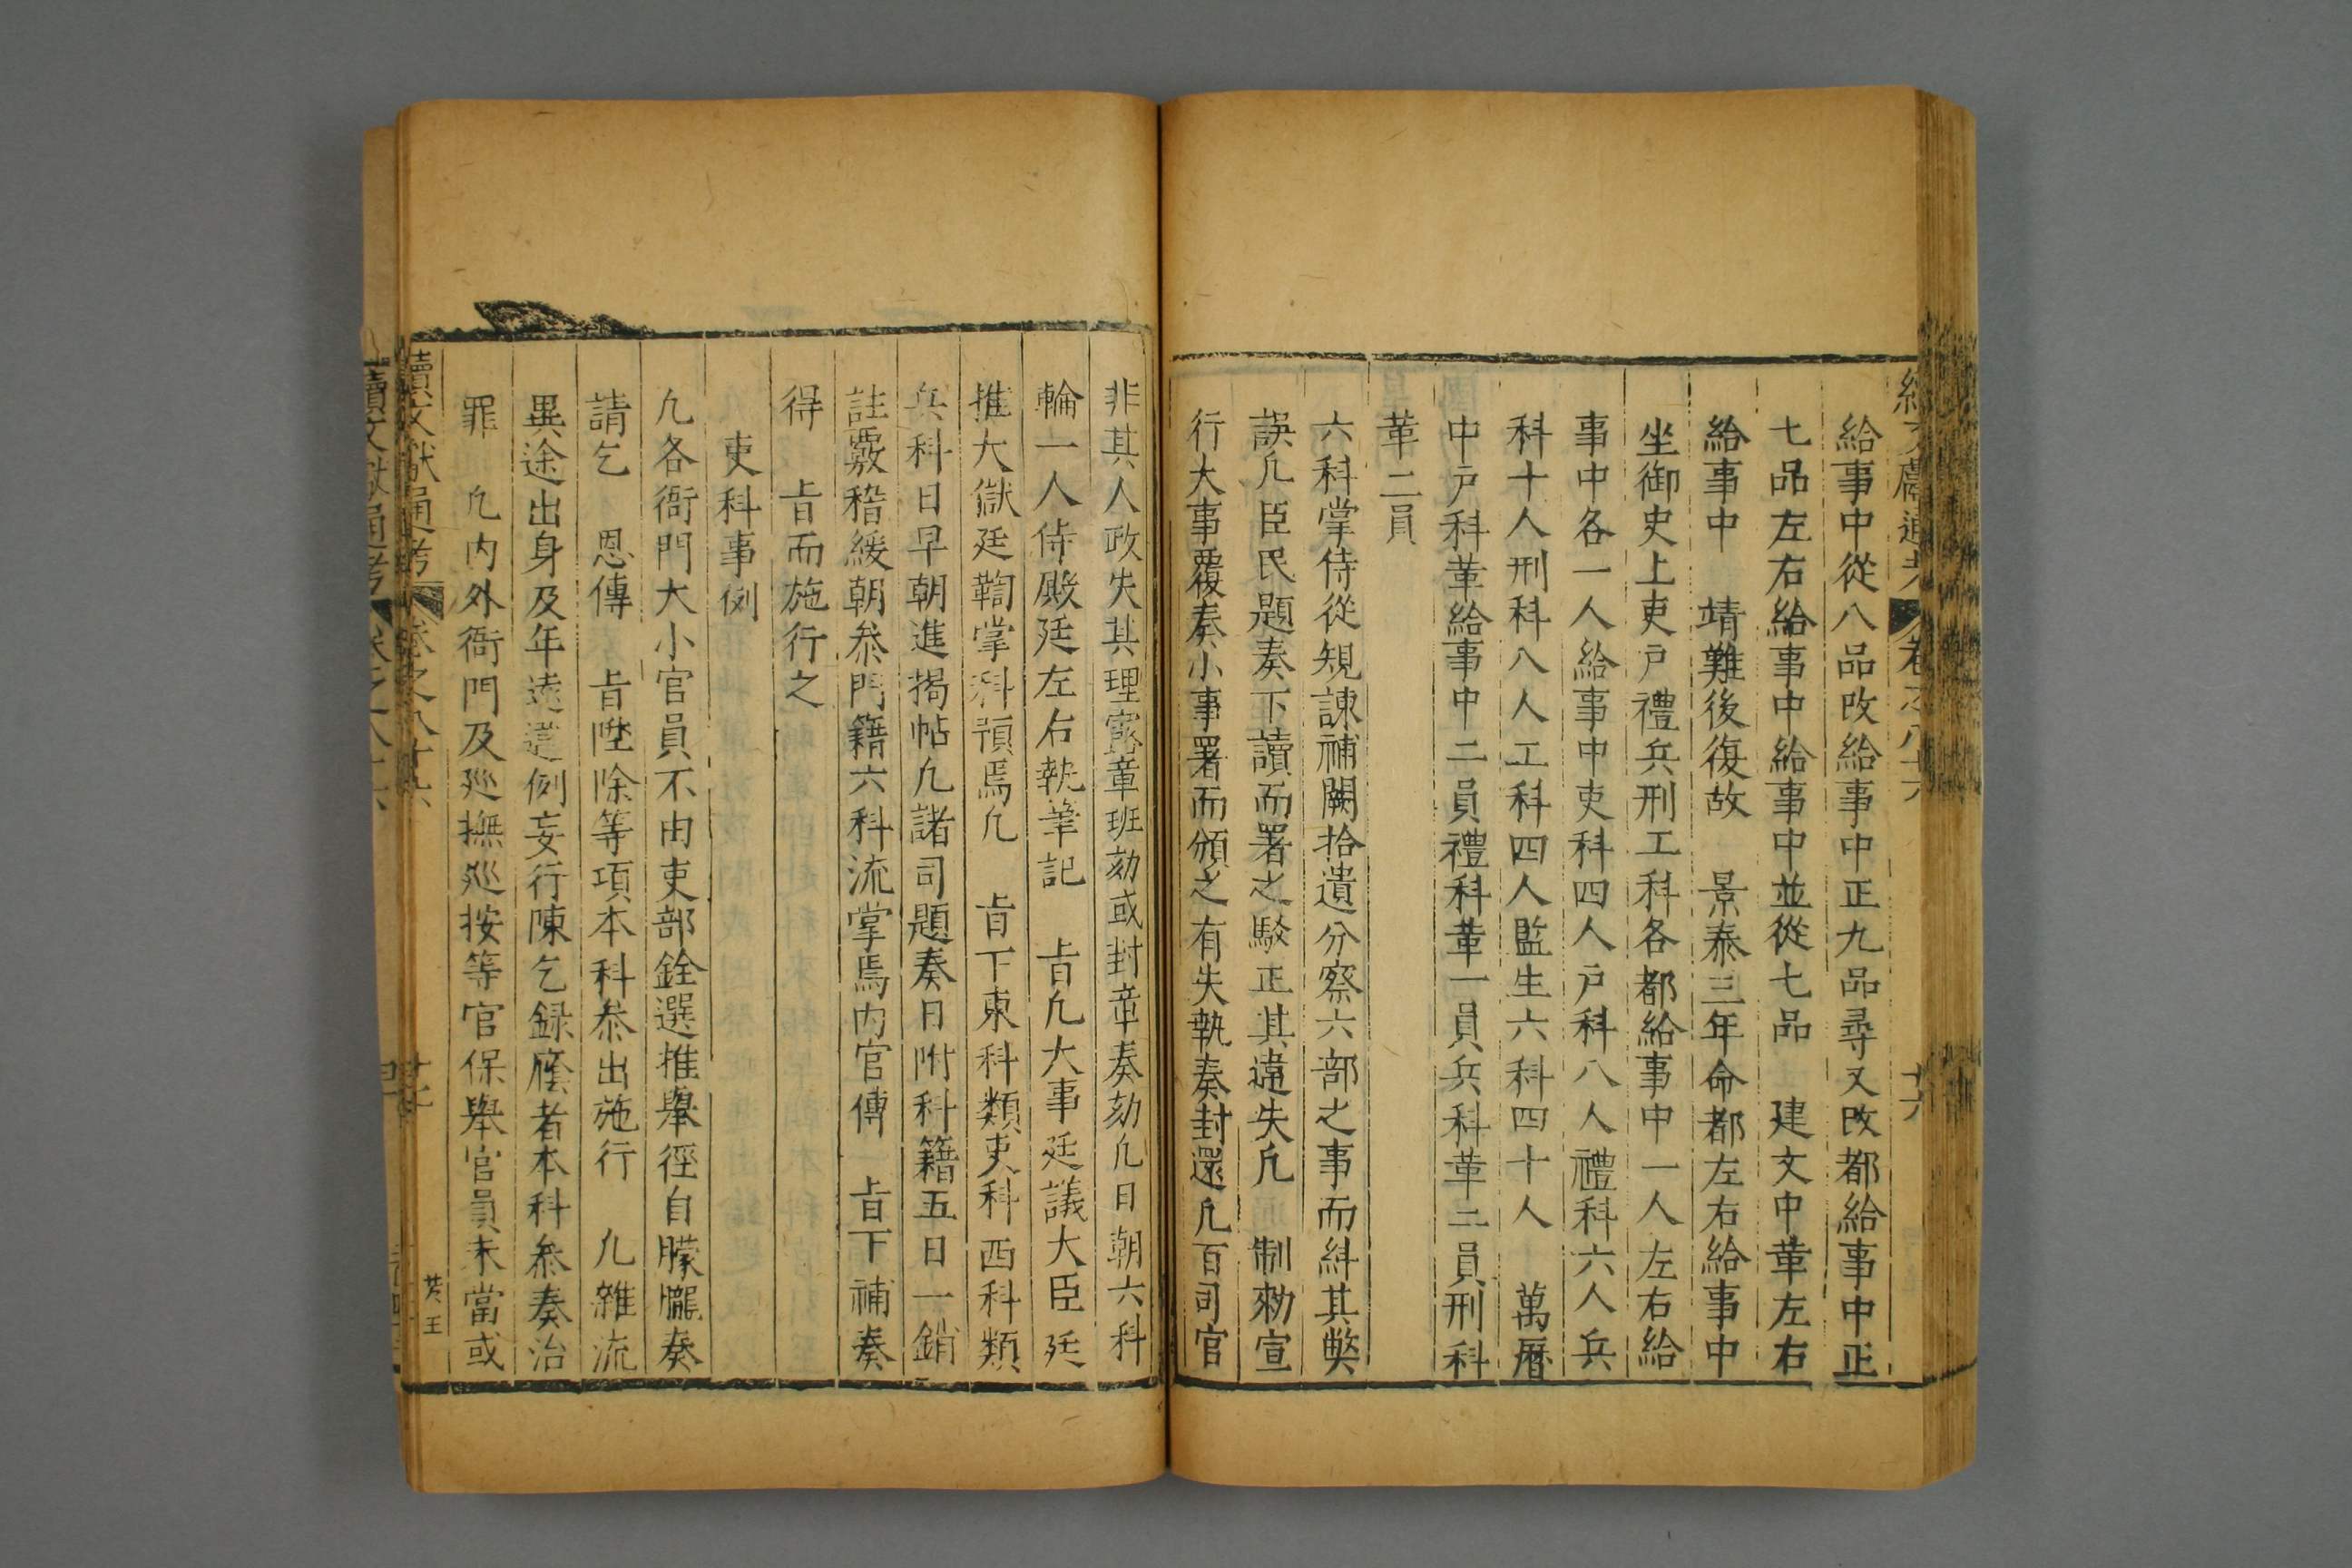 續文獻通考 卷之八十六 十六
給事中從八品改給事中正九品尋又改都給事中正
七品左右給事中給事中並從七品 建文中革左右
給事中 靖難後復故 景泰三年命都左右給事中
坐御史上吏戶禮兵刑工科各都給事中一人左右給
事中各一人給事中吏科四人戶科八人禮科六人兵
科十人刑科八人工科四人監生六科四十人 萬曆
中戶科革給事中二員禮科革一員兵科革二員刑科
革二員
六科掌侍從規諫補闕拾遺分察六部之事而糾其弊
誤凡臣民題奏下讀而署之駁正其違失凡 制勑宣
行大事覆奏小事署而頒之有失執奏封還凡百司官
非其人政失其理露章班劾或封章奏劾凡日朝六科
輪一人侍殿廷左右執筆記 旨凡大事廷議大臣廷
推大獄廷鞫掌科預焉凡 旨下東科類吏科西科類
兵科日早朝進揭帖凡諸司題奏日附科籍五日一銷
註覈稽緩朝叅門籍六科流掌焉内官傳 旨下補奏
得 旨而施行之
吏科事例
凡各衙門大小官員不由吏部銓選推舉徑自朦朧奏
請乞 恩傳 旨陞除等項本科叅出施行 凡雜流
異途出身及年遠違例妄行陳乞録廕者本科叅奏治
罪 凡内外衙門及廵撫廵按等官保舉官員未當或
續文獻通考 卷之八十六
黄王
續文獻通考